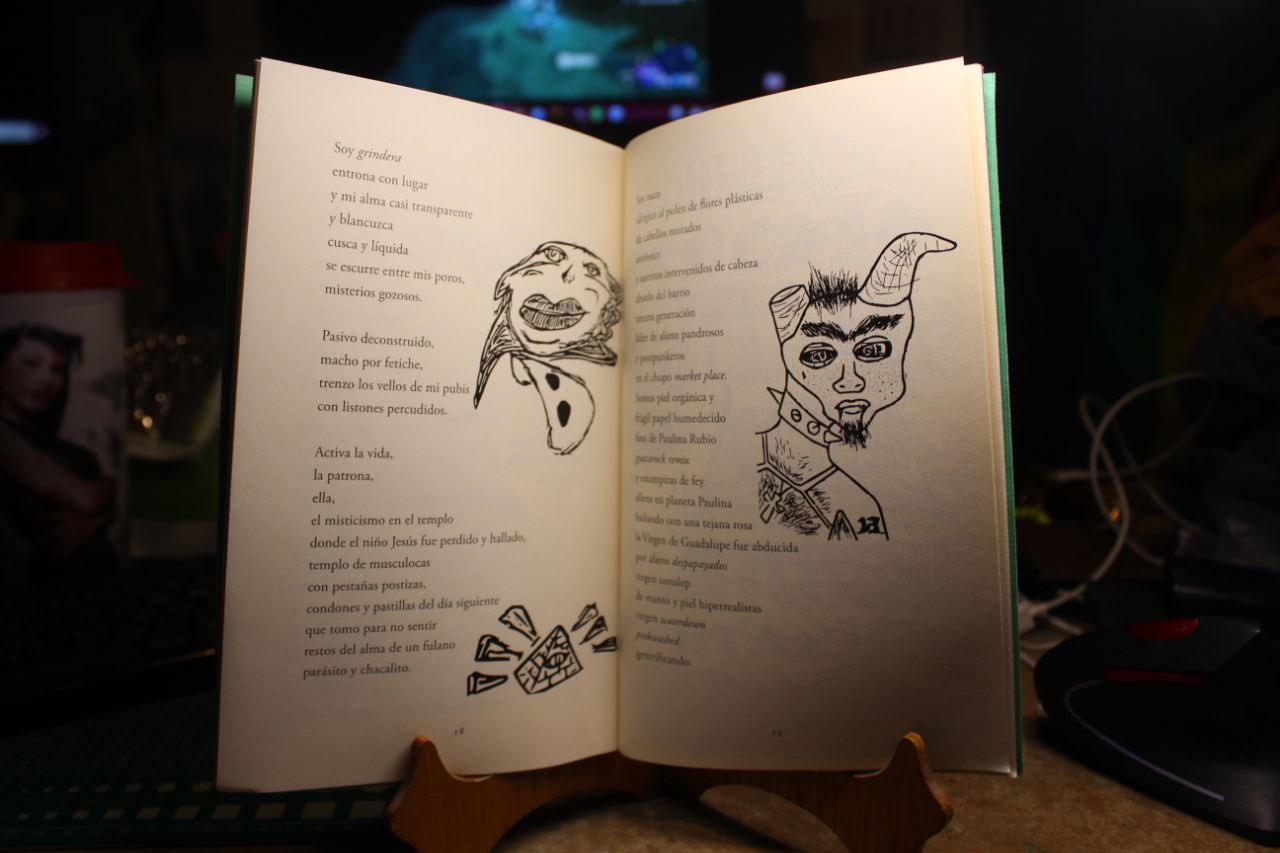 Soy grindera
entrona con lugar
y mi alma casi transparente
y blancuzca
cusca y líquida
se escurre entre mis poros,
misterios gozosos.
Pasivo deconstruido,
macho por fetiche,
trenzo los vellos de mi pubis
con listones percudidos.
Activa la vida,
la patrona,
ella,
el misticismo en el templo
donde el niño Jesús fue perdido y hallado,
templo de musculocas
con pestañas postizas,
condones y pastillas del día siguiente
que tomo para no sentir
restos del alma de un fulano
parásito y chacalito.
18
Soy naco
alérgico al polen de flores plásticas
de cabellos morados
aesthetics
y santitos intervenidos de cabeza
abuelo del barrio
tercera generación
líder de aliens pandrosos
y postpunketos
en el chopo market place.
Somos piel orgánica y
frágil papel humedecido
fans de Paulina Rubio
guacarock remix
y estampitas de fey
aliens en planeta Paulina
bailando con una tejana rosa
la Virgen de Guadalupe fue abducida
por aliens despapayados
virgen conalep
de manto y piel hiperrealistas
virgen waterdown
pinkwashed
gentrificando.
19
13